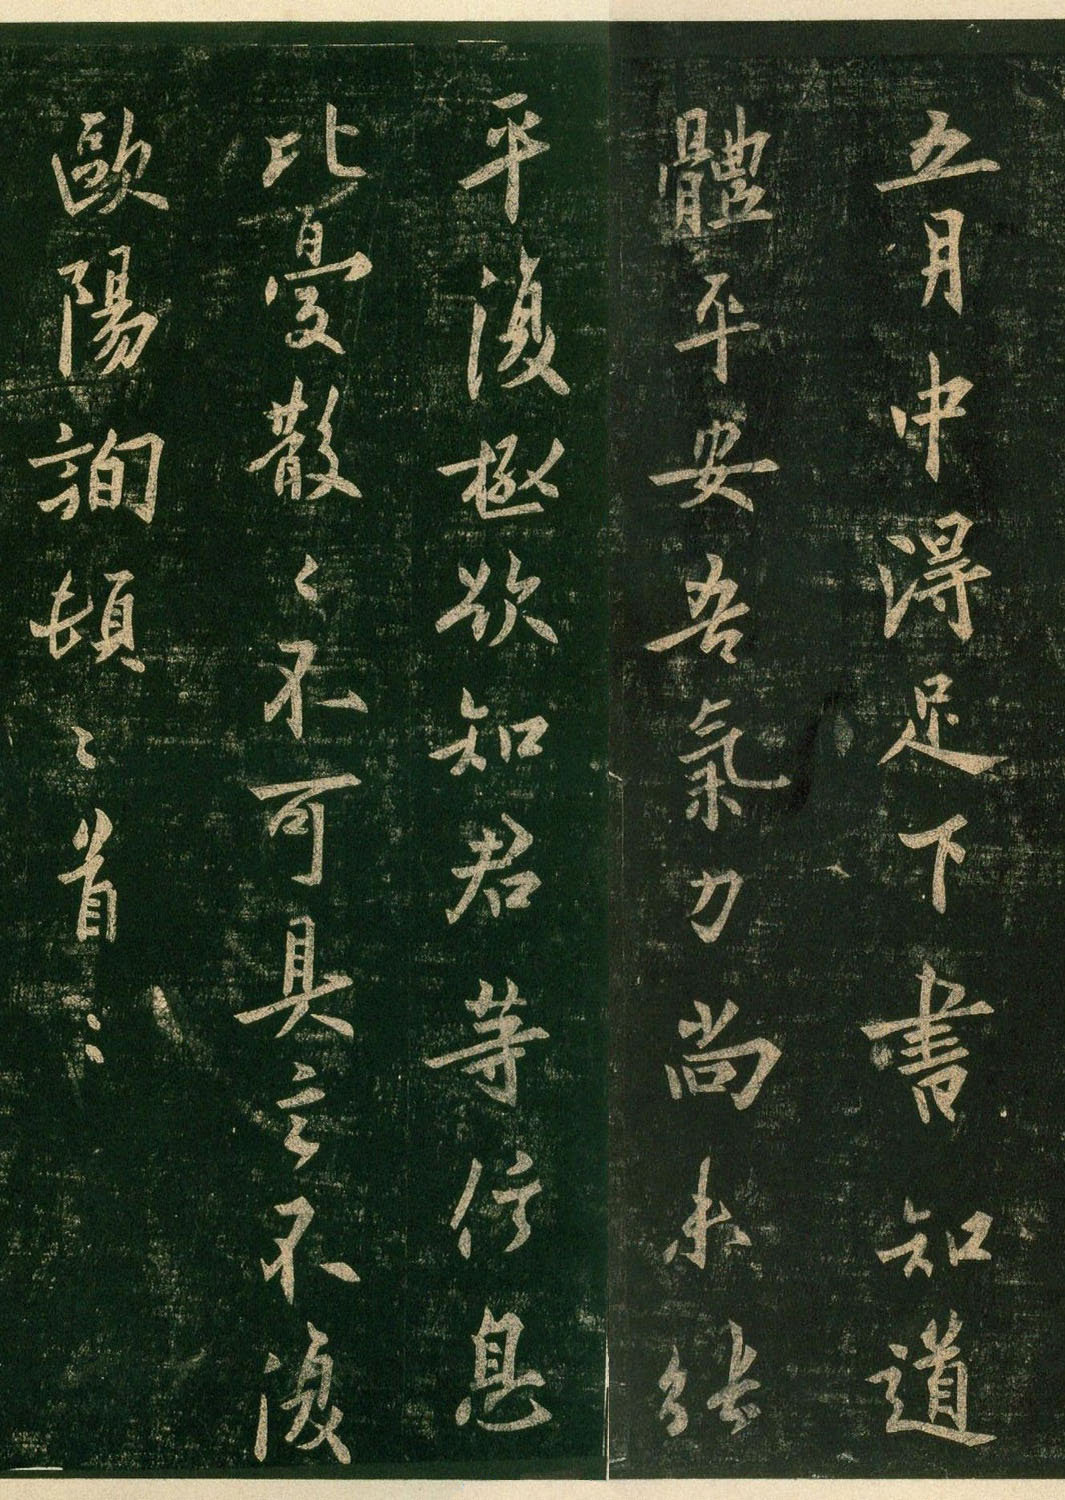 五月中得足下書知道
體平安吾氣力尚未能
平復極欲知君等信息
比憂散々不可具言不復
歐陽詢頓々首々